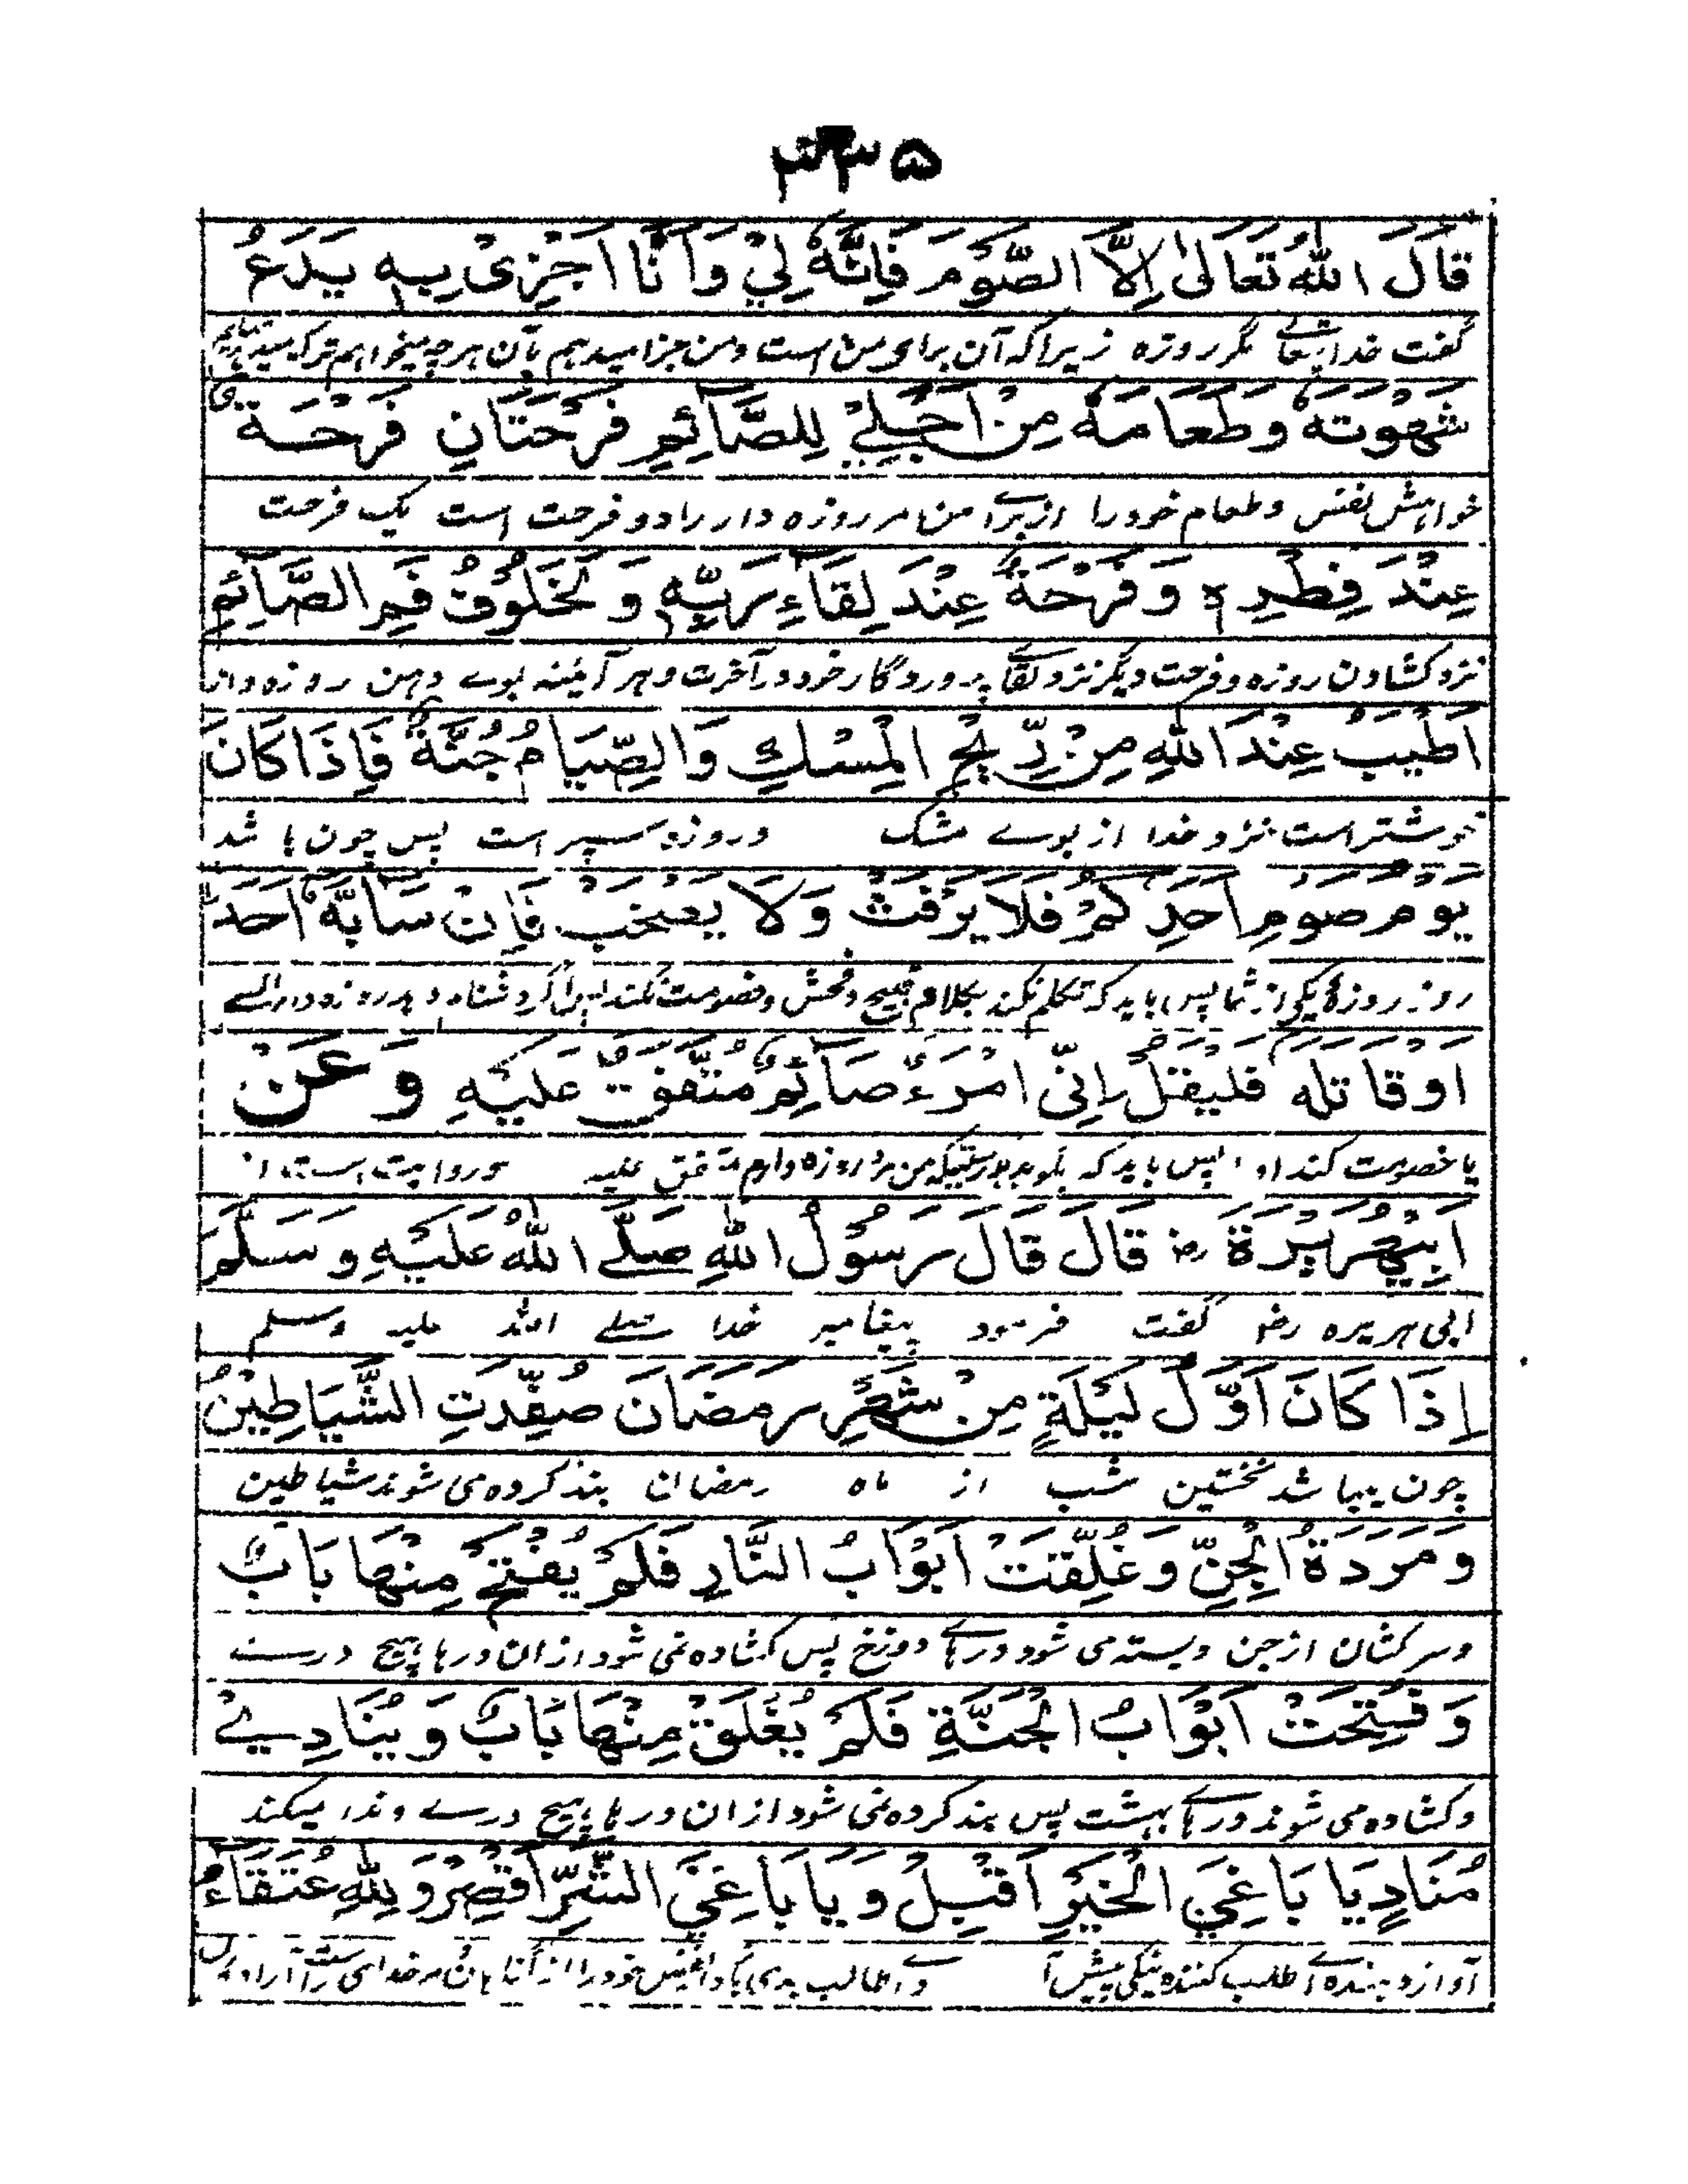 ۳۳۵
قَالَ اللهُ تَعَالٰى اِلَّا الصَّوْمَ فَاِنَّهٗ لِيْ وَاَنَا اَجْزِیْ بِهٖ يَدَعُ
گفت خدایتعالے مگر روزه زیراکه آن برای من است و من جزا میدهم بآن هر چه میخواهم ترک میدهد
شَهْوَتَهٗ وَطَعَامَهٗ مِنْ اَجْلِيْ لِلصَّآئِمِ فَرْحَتَانِ فَرْحَةٌ
خواهش نفس و طعام خود را از برائے من مر روزه دار را دو فرحت است یک فرحت
عِنْدَ فِطْرِهٖ وَفَرْحَةٌ عِنْدَ لِقَآءِ رَبِّهٖ وَلَخَلُوْفُ فَمِ الصَّآئِمِ
نزد کشادن روزه و فرحت دیگر نزد لقائے پروردگار خود در آخرت و هر آئینه بوے دهن روزه دار
اَطْيَبُ عِنْدَ اللهِ مِنْ رِّيْحِ الْمِسْكِ وَالصِّيَامُ جُنَّةٌ فَاِذَا كَانَ
خوشتر است نزد خدا از بوے مشک و روزه سپر است پس چون باشد
يَوْمُ صَوْمِ اَحَدِكُمْ فَلَا يَرْفَثْ وَلَا يَصْخَبْ فَاِنْ سَابَّهٗ اَحَدٌ
روز روزهٔ یکی از شما پس باید که تکلم نکند بکلام قبیح و فحش و خصومت نکند پس اگر دشنام دهد روزه دار را کسے
اَوْ قَاتَلَهٗ فَلْيَقُلْ اِنِّیْ امْرَءٌ صَآئِمٌ مُتَّفَقٌ عَلَيْهِ وَعَنْ
یا خصومت کند او پس باید که بگوید بدرستیکه من مرد روزه دارم متفق علیه و روایت است از
اَبِيْ هُرَيْرَةَ رض قَالَ قَالَ رَسُوْلُ اللهِ صَلَّے اللهُ عَلَيْهِ وَسَلَّمَ
ابی هریره رض گفت فرمود پیغامبر خدا صلے الله علیه وسلم
اِذَا كَانَ اَوَّلُ لَيْلَةٍ مِنْ شَهْرِ رَمَضَانَ صُفِّدَتِ الشَّيَاطِيْنُ
چون میباشد نخستین شب از ماه رمضان بند کرده می شوند شیاطین
وَمَرَدَةُ الْجِنِّ وَغُلِّقَتْ اَبْوَابُ النَّارِ فَلَمْ يُفْتَحْ مِنْهَا بَابٌ
و سرکشان از جن و بسته می شود درهائے دوزخ پس کشاده نمی شود از ان درها هیچ درے
وَفُتِحَتْ اَبْوَابُ الْجَنَّةِ فَلَمْ يُغْلَقْ مِنْهَا بَابٌ وَيُنَادِيْ
و کشاده می شوند درهائے بهشت پس بند کرده نمی شود از ان درها هیچ درے و ندا میکند
مُنَادٍ يَا بَاغِيَ الْخَيْرِ اَقْبِلْ وَيَا بَاغِيَ الشَّرِّ اَقْصِرْ وَلِلّٰهِ عُتَقَآءُ
آواز دهنده اے طلب کننده نیکی پیش آ و اے طالب بدی باز دار نفس خود را از گناهان و مر خدای راست آزاد